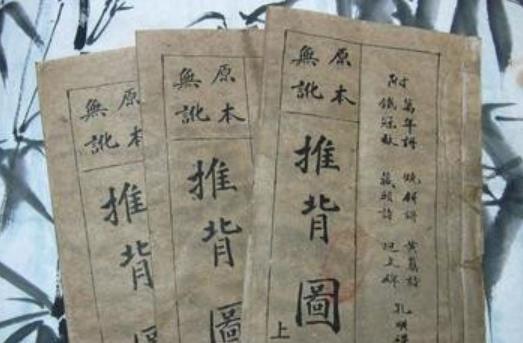 原本
無訛
推背
原本
無訛
推背圖
原本
無訛
推背圖
上
附
萬年詩 燒餅詩 黃蘗詩
鐵冠數 藏頭詩 孔明碑